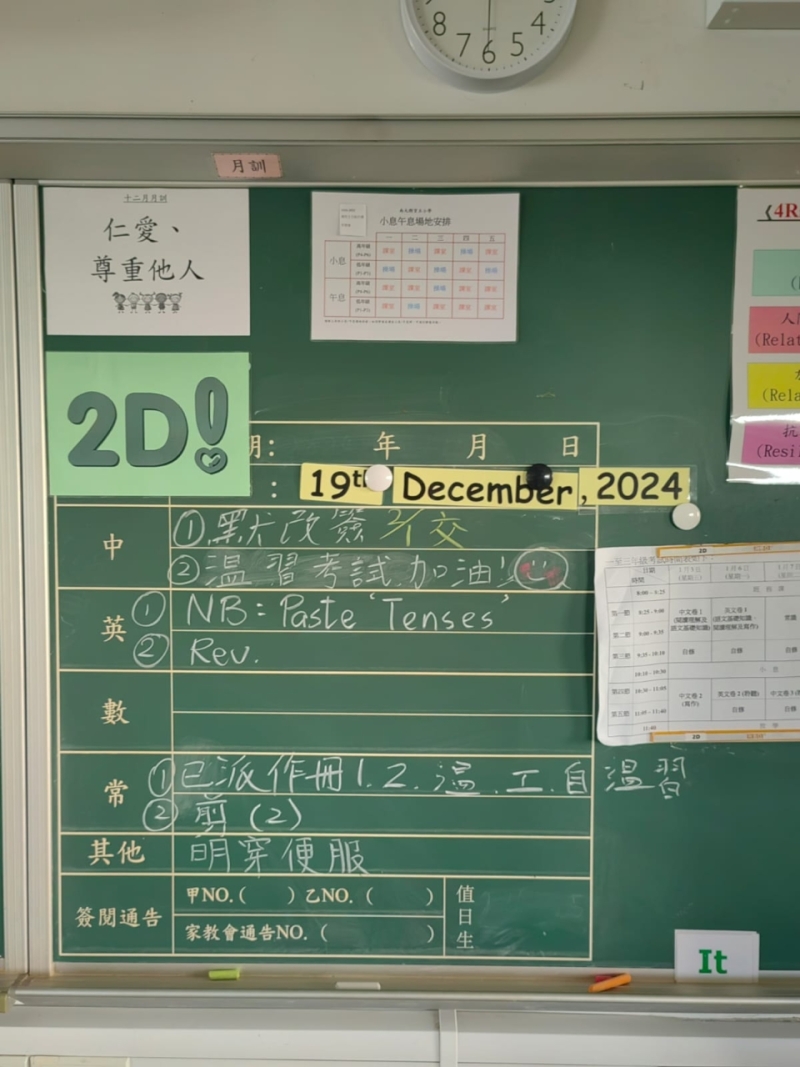 8 7 6 5 4
月訓
十二月月訓
仁愛、
尊重他人
小息午息場地安排
一 二 三 四 五
小息
午息
2D!
期: 年 月 日
: 19th December, 2024
中
①默犬改簽 2/1交
②溫習考試,加油!
英
① NB: Paste 'Tenses'
② Rev.
數
常
①已派作冊1.2.溫.工.自溫習
②剪(2)
其他
明穿便服
簽閱通告
甲NO.( )乙NO.( )
家教會通告NO.( )
值日生
《4R
人
(Relat
(Rela
抗
(Resil
2D
時間
8:00 - 8:25
第一節 8:25 - 9:00 中文卷1 英文卷1 常識
第二節 9:00 - 9:35
第三節 9:35 - 10:10 自修 自修
10:10 - 10:30 小息
第四節 10:30 - 11:05 中文卷2 英文卷2(聆聽)
第五節 11:05 - 11:40 (寫作) 自修 自修
11:40
2D
It